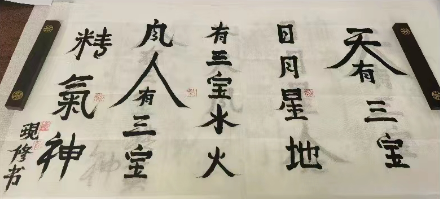 天有三宝
日月星地
有三宝水火
风人有三宝
精氣神
現修书